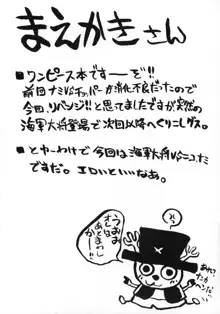 まえがきさん
■ワンピース本です──を!!
前回ナミVSチョッパーが消化不良だったので
今回、リベンジ!!と思ってましたですが突然の
海軍大将登場で次回以降へくりこしデス。
■とゆーわけで今回は海軍大将VSニコ、ナミ
ですだ。エロいといいなあ。
うおお
オレは
あとまわし
かー!!
?
あれ?
なんか
ヘンだ…